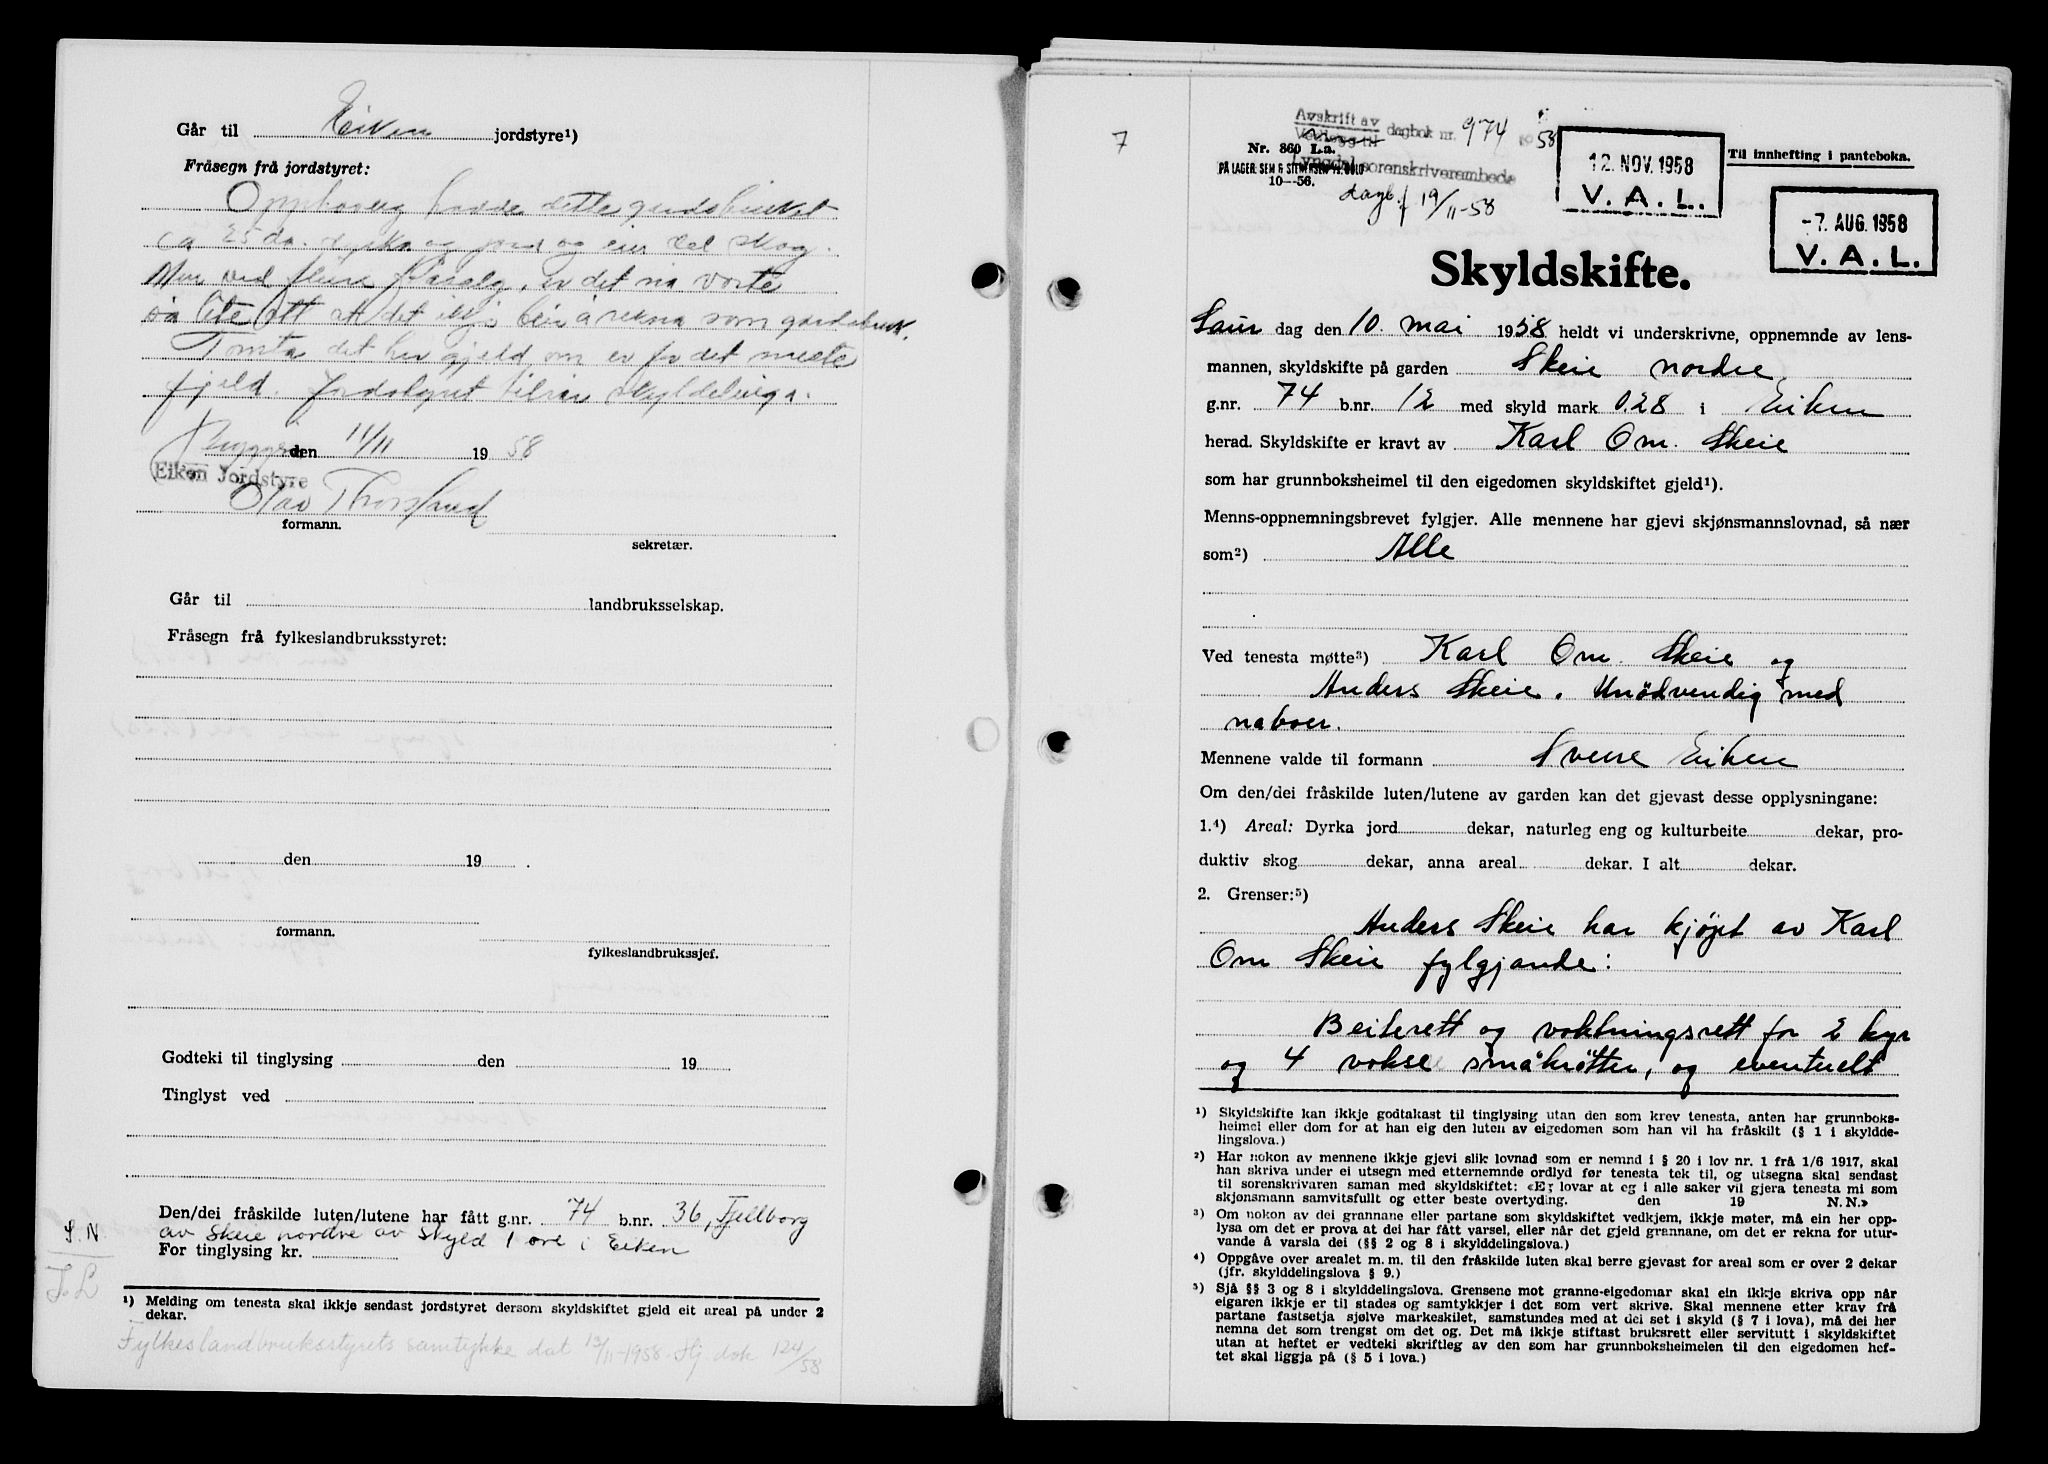 Går til Eiken jordstyre¹)
Fråsegn frå jordstyret:
Oppbaveg hadde dette gardsbruket
ca 25 da. dyrka og jord og ein del skog.
Men ved fleire frasalg, er det nå vorte
så lite att at det ikkje bør å rekna som gardsbruk.
Tomta det her gjeld om er for det meste
fjeld. Jordstyret tilrår skylddelinga.
den 11/11 1958
Eiken Jordstyre
Olav
formann.
sekretær.
Går til landbruksselskap.
Fråsegn frå fylkeslandbruksstyret:
den 19 .
formann.
fylkeslandbrukssjef.
Godteki til tinglysing den 19
Tinglyst ved
Den/dei fråskilde luten/lutene har fått g.nr. 74 b.nr. 36, Fjellborg
S. N.
av Skeie nordre av skyld 1 øre i Eiken
For tinglysing kr.
J. L
¹) Melding om tenesta skal ikkje sendast jordstyret dersom skyldskiftet gjeld eit areal på under 2
dekar.
Fylkeslandbruksstyrets samtykke dat 13/11-1958. Hj dok 124/58
7
Avskrift av
Vedlegg til dagbok nr. 974 1958
Nr. 860 La.
Lyngdal sorenskriverembede
PÅ LAGER: SEM & STENERSEN A/S OSLO
10—56.
dagb. f 19/11-58
12. NOV. 1958
V. A. L.
Til innhefting i panteboka.
-7. AUG. 1958
V. A. L.
Skyldskifte.
Laur dag den 10. mai 1958 heldt vi underskrivne, oppnemnde av lens-
mannen, skyldskifte på garden Skeie nordre
g.nr. 74 b.nr. 12 med skyld mark 0.28 i Eiken
herad. Skyldskifte er kravt av Karl Om. Skeie
som har grunnboksheimel til den eigedomen skyldskiftet gjeld¹).
Menns-oppnemningsbrevet fylgjer. Alle mennene har gjevi skjønsmannslovnad, så nær
som²) Alle
Ved tenesta møtte³) Karl Om. Skeie og
Anders Skeie. Unödvendig med
naboer.
Mennene valde til formann Sverre Eiken
Om den/dei fråskilde luten/lutene av garden kan det gjevast desse opplysningane:
1.⁴) Areal: Dyrka jord dekar, naturleg eng og kulturbeite dekar, pro-
duktiv skog dekar, anna areal dekar. I alt dekar.
2. Grenser:⁵)
Anders Skeie har kjøpt av Karl
Om Skeie fylgjande:
Beiterett og voktningsrett for 2 kyr
og 4 vokse småkrøtter, og eventuelt
¹) Skyldskifte kan ikkje godtakast til tinglysing utan den som krev tenesta, anten har grunnboks-
heimel eller dom for at han eig den luten av eigedomen som han vil ha fråskilt (§ 1 i skyldde-
lingslova.)
²) Har nokon av mennene ikkje gjevi slik lovnad som er nemnd i § 20 i lov nr. 1 frå 1/6 1917, skal
han skriva under ei utsegn med etternemnde ordlyd før tenesta tek til, og utsegna skal sendast
til sorenskrivaren saman med skyldskiftet: «Eg lovar at eg i alle saker vil gjera tenesta mi som
skjønsmann samvitsfullt og etter beste overtyding. den 19 N. N.»
³) Om nokon av dei grannane eller partane som skyldskiftet vedkjem, ikkje møter, må ein her opp-
lysa om det er prova at dei har fått varsel, eller når det gjeld grannane, om det er rekna for utur-
vande å varsla dei (§§ 2 og 8 i skylddelingslova.)
⁴) Oppgåve over arealet m. m. til den fråskilde luten skal berre gjevast for areal som er over 2 dekar
(jfr. skylddelingslova § 9.)
⁵) Sjå §§ 3 og 8 i skylddelingslova. Grensene mot granne-eigedomar skal ein ikkje skriva opp når
eigaren ikkje er til stades og samtykkjer i det som vert skrive. Skal mennene etter krav frå
partane fastsetja sjølve markeskilet, samstundes med at dei set i skyld (§ 7 i lova), må dei her
nemna det som trengst om det og. Det må ikkje stiftast bruksrett eller servitutt i skyldskiftet
utan at heftet er vedteki skriftleg av den som har grunnboksheimelen til den eigedomen hef-
tet skal liggja på (§ 5 i lova.)